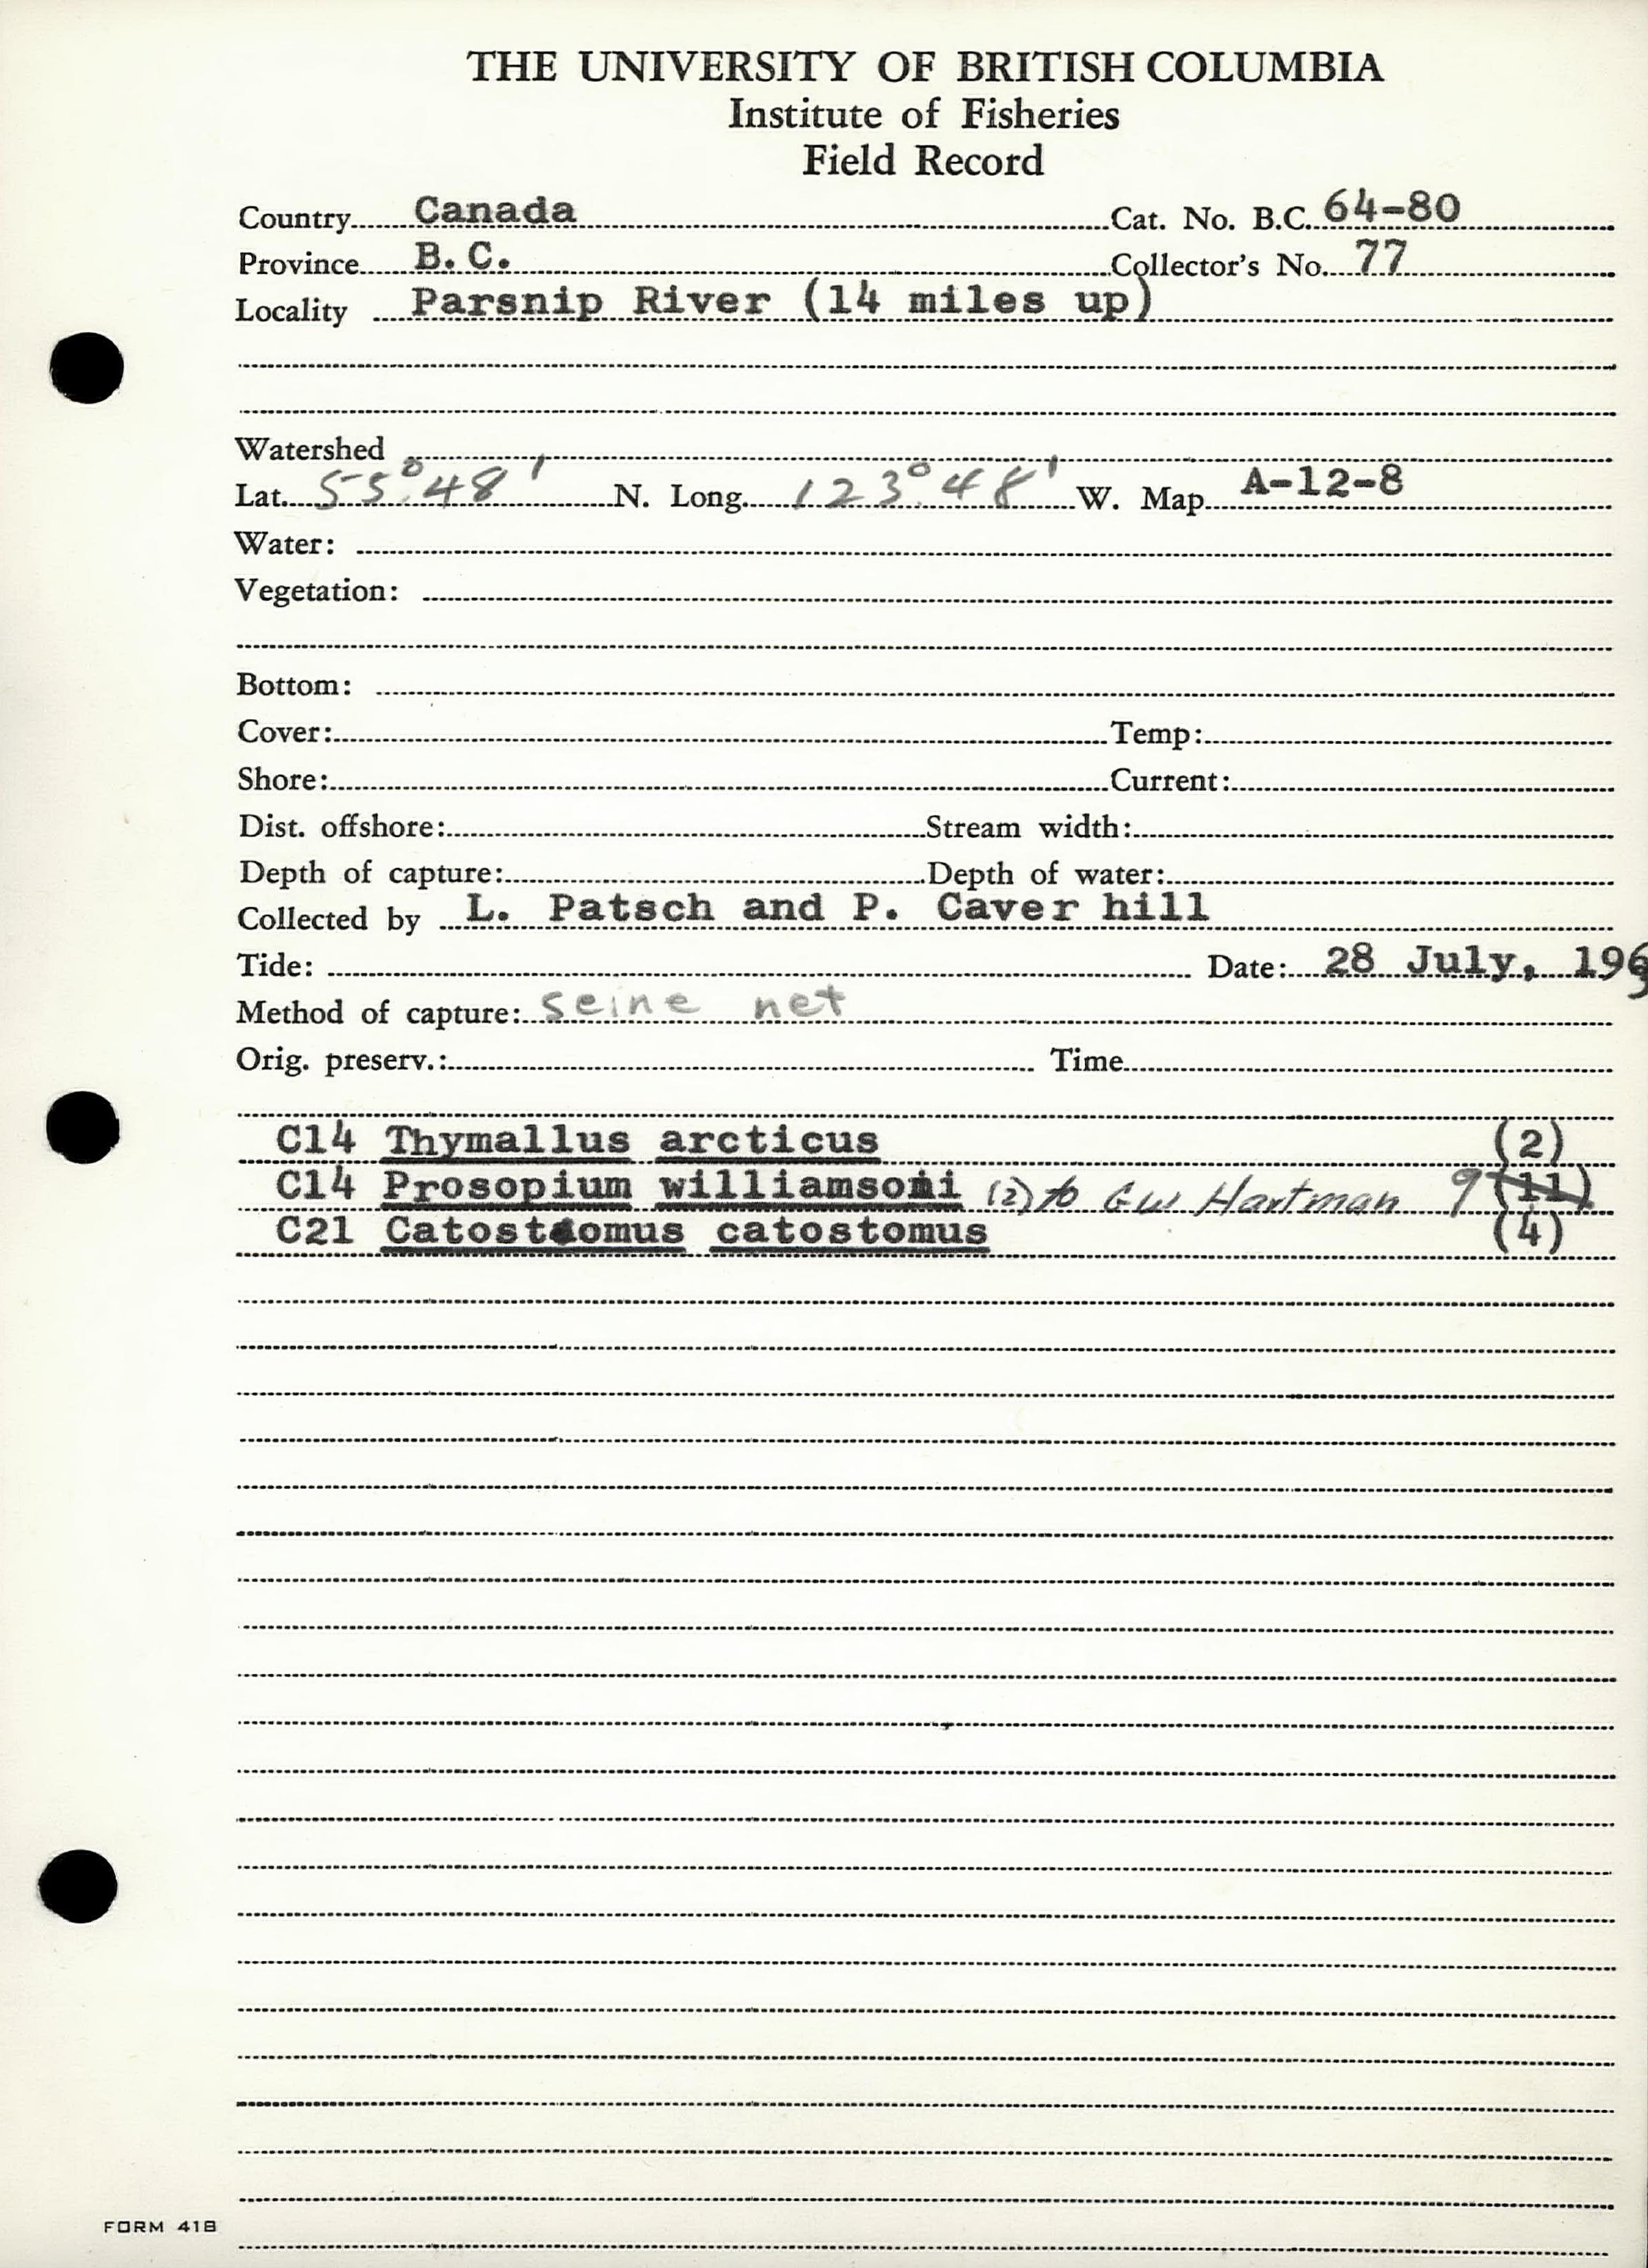 THE UNIVERSITY OF BRITISH COLUMBIA
Institute of Fisheries
Field Record
Country Canada Cat. No. B.C. 64-80
Province B.C. Collector's No. 77
Locality Parsnip River (14 miles up)
Watershed
Lat. 55°48' N. Long. 123°48' W. Map A-12-8
Water:
Vegetation:
Bottom:
Cover: Temp:
Shore: Current:
Dist. offshore: Stream width:
Depth of capture: Depth of water:
Collected by L. Patsch and P. Caver hill
Tide: Date: 28 July, 196
Method of capture: seine net
Orig. preserv.: Time
C14 Thymallus arcticus (2)
C14 Prosopium williamsoni (2) to G W Hartman 9 (11)
C21 Catostomus catostomus (4)
FORM 41B